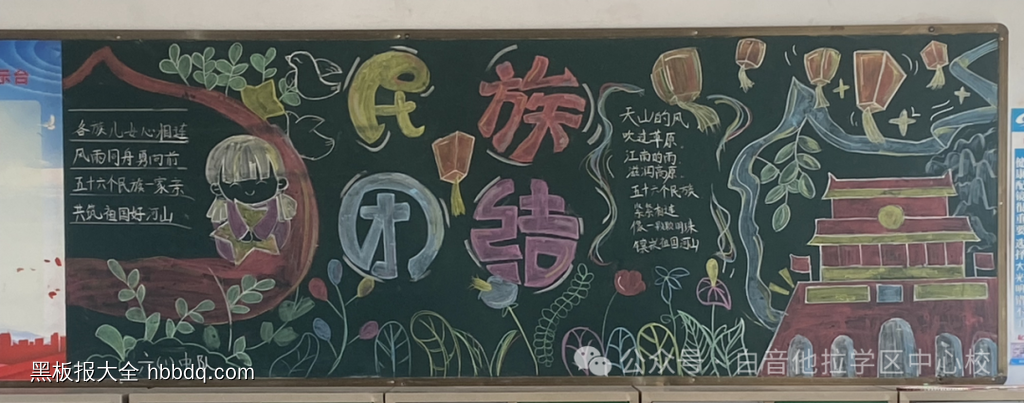 示台
民族
团结
各族儿女心相连
风雨同舟勇向前
五十六个民族一家亲
共筑祖国好河山
天山的风
吹过草原
江南的雨
滋润高原
五十六个民族
紧紧相连
像一颗颗明珠
镶嵌祖国河山
中队
黑板报大全 hbbdq.com
公众号 · 白音他拉学区中心校